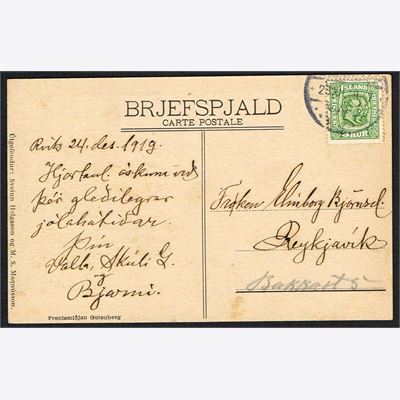 BRJEFSPJALD
CARTE POSTALE
ÍSLAND
5 AUR
Rvík 24. des. 1919.
Hjartanl. óskum við
þér gleðilegrar
jólahátíðar
þín
Valla, Skúli G.
og
Bjarni.
Frøken Elinborg Bjørnsd.
Reykjavík
Bakkast 5
Útgefendur: Sveinn Helgason og M. S. Magnússon.
Prentsmiðjan Gutenberg